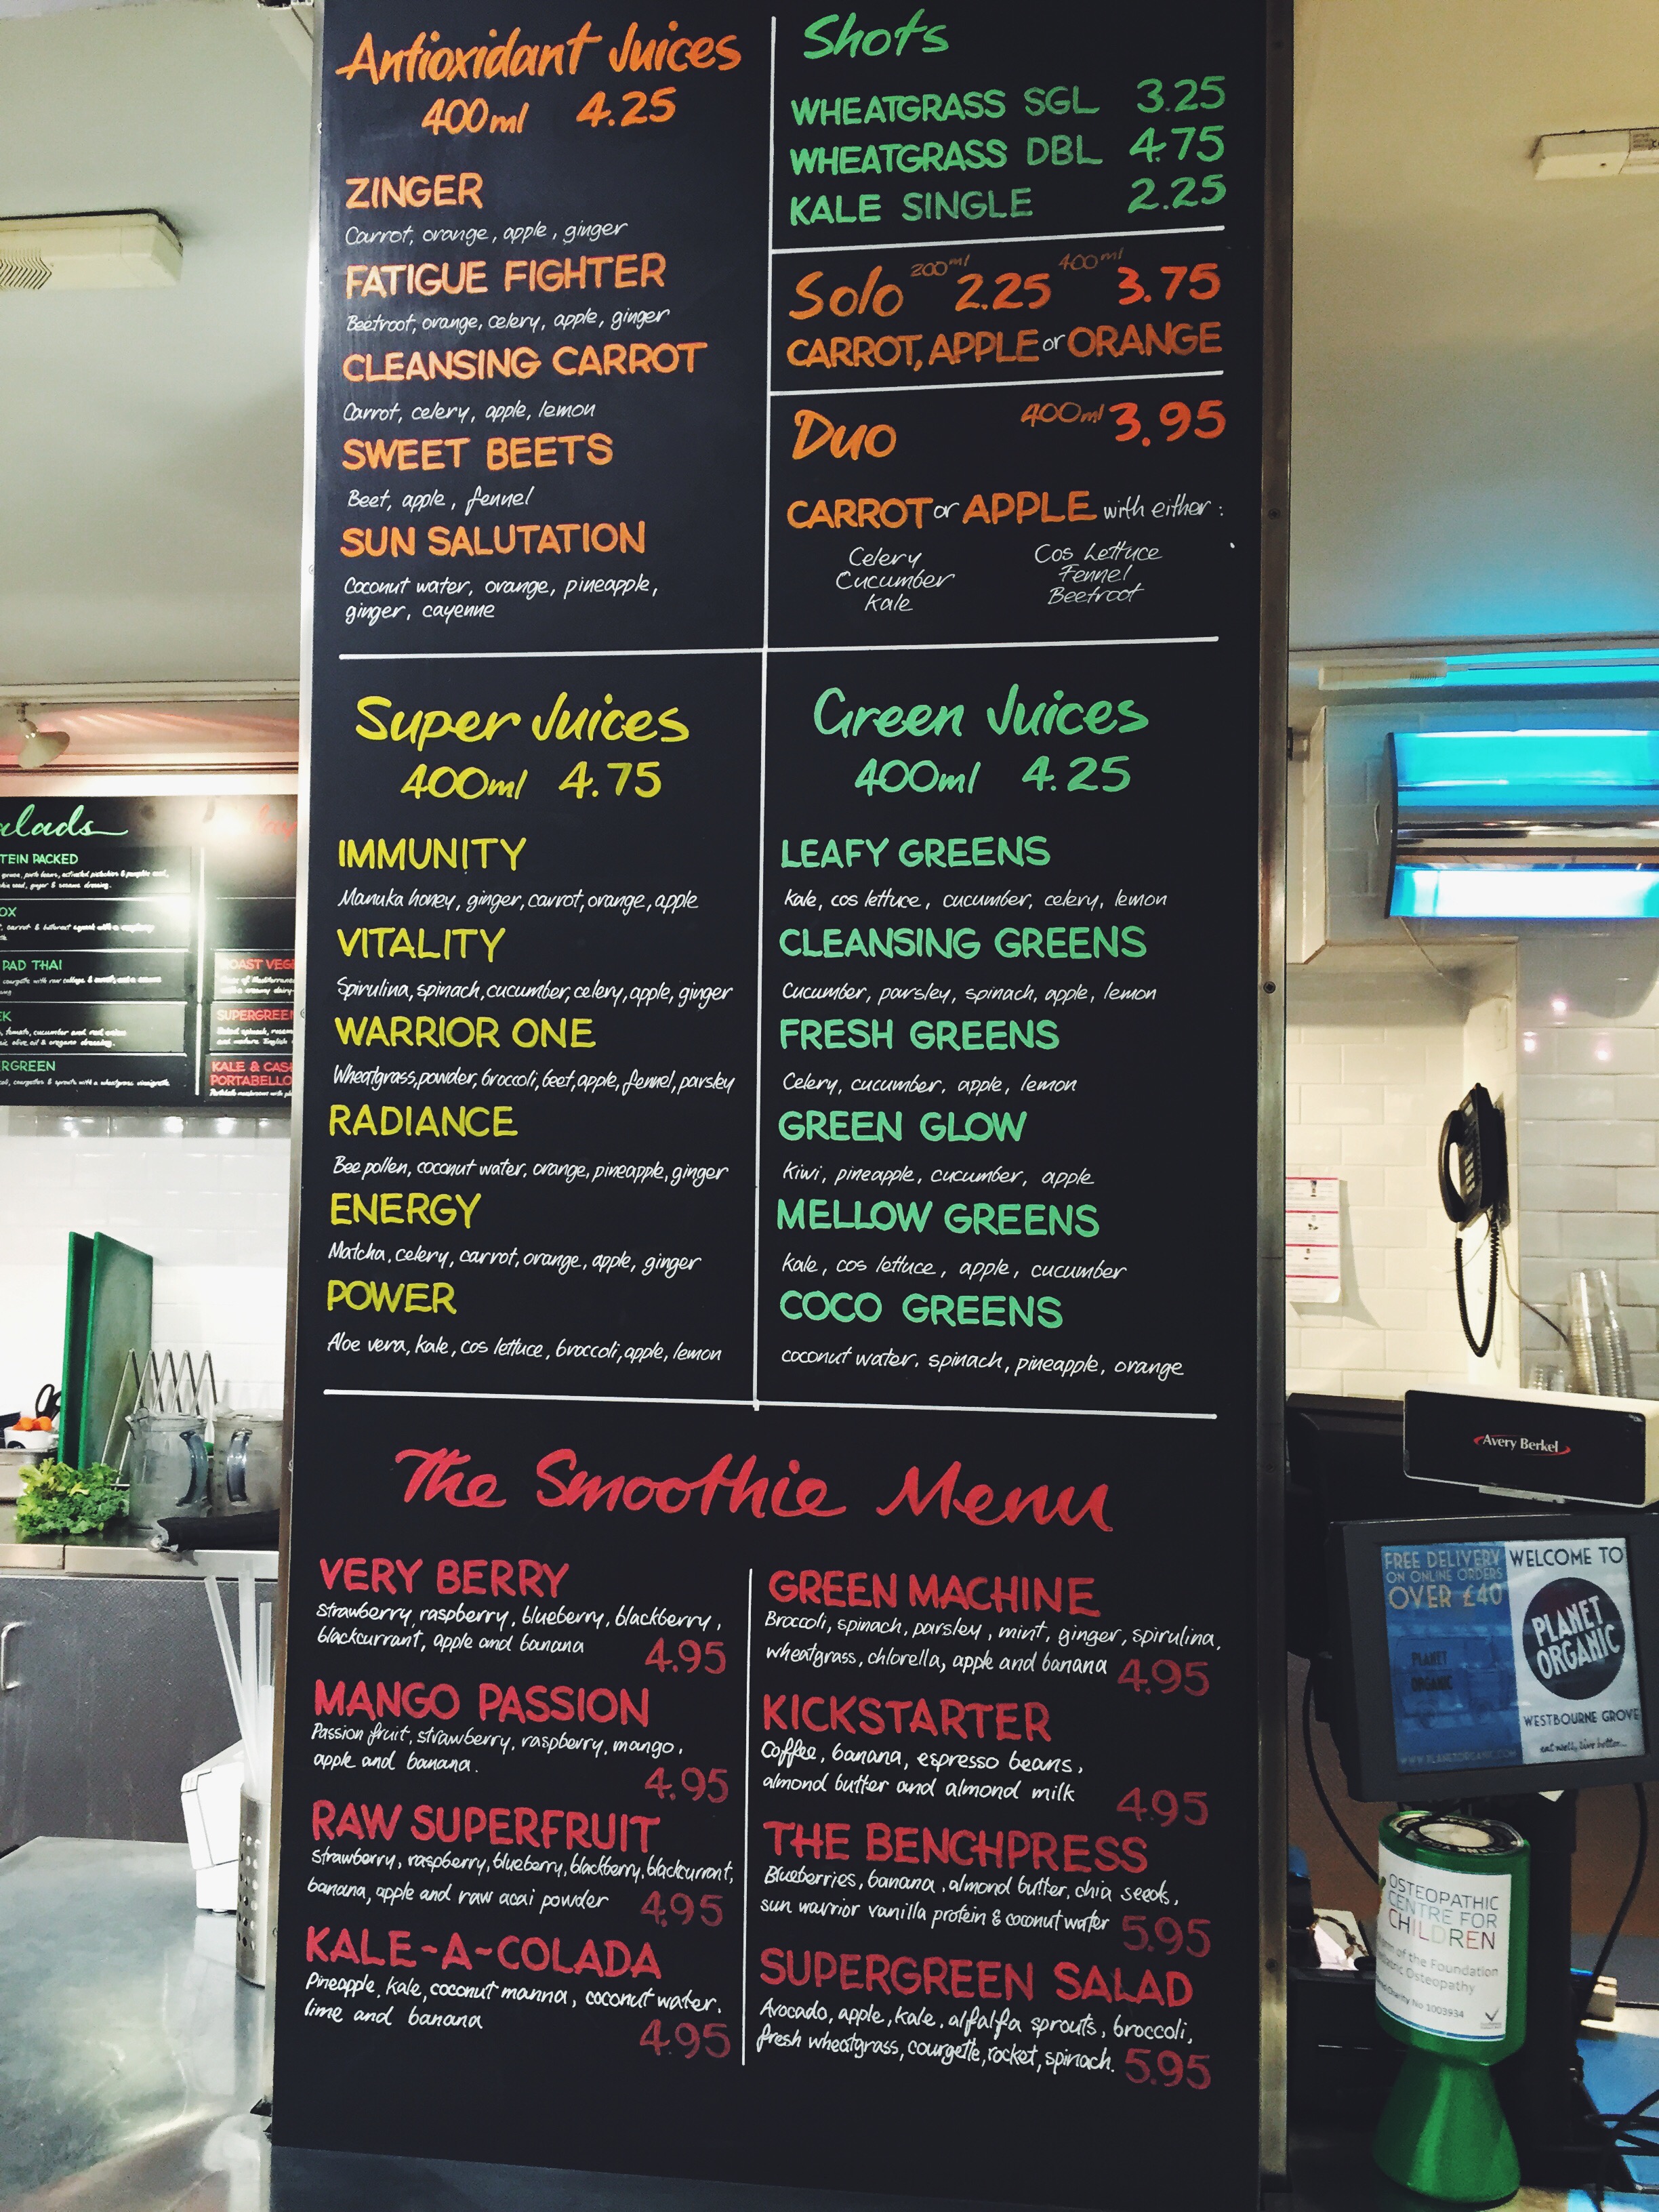 Antioxidant Juices
400ml 4.25
ZINGER
Carrot, orange, apple, ginger
FATIGUE FIGHTER
Beetroot, orange, celery, apple, ginger
CLEANSING CARROT
Carrot, celery, apple, lemon
SWEET BEETS
Beet, apple, fennel
SUN SALUTATION
Coconut water, orange, pineapple,
ginger, cayenne
Shots
WHEATGRASS SGL 3.25
WHEATGRASS DBL 4.75
KALE SINGLE 2.25
Solo 200ml 2.25 400ml 3.75
CARROT, APPLE or ORANGE
Duo 400ml 3.95
CARROT or APPLE with either:
Celery Cos Lettuce
Cucumber Fennel
Kale Beetroot
Super Juices
400ml 4.75
IMMUNITY
Manuka honey, ginger, carrot, orange, apple
VITALITY
Spirulina, spinach, cucumber, celery, apple, ginger
WARRIOR ONE
Wheatgrass, powder, broccoli, beet, apple, fennel, parsley
RADIANCE
Bee pollen, coconut water, orange, pineapple, ginger
ENERGY
Matcha, celery, carrot, orange, apple, ginger
POWER
Aloe vera, kale, cos lettuce, broccoli, apple, lemon
Green Juices
400ml 4.25
LEAFY GREENS
Kale, cos lettuce, cucumber, celery, lemon
CLEANSING GREENS
Cucumber, parsley, spinach, apple, lemon
FRESH GREENS
Celery, cucumber, apple, lemon
GREEN GLOW
Kiwi, pineapple, cucumber, apple
MELLOW GREENS
Kale, cos lettuce, apple, cucumber
COCO GREENS
coconut water, spinach, pineapple, orange
The Smoothie Menu
VERY BERRY
Strawberry, raspberry, blueberry, blackberry,
blackcurrant, apple and banana 4.95
MANGO PASSION
Passion fruit, strawberry, raspberry, mango,
apple and banana.
4.95
RAW SUPERFRUIT
Strawberry, raspberry, blueberry, blackberry, blackcurrant,
banana, apple and raw acai powder 4.95
KALE-A-COLADA
Pineapple, kale, coconut manna, coconut water,
lime and banana
4.95
GREEN MACHINE
Broccoli, spinach, parsley, mint, ginger, spirulina,
wheatgrass, chlorella, apple and banana 4.95
KICKSTARTER
Coffee, banana, espresso beans,
almond butter and almond milk 4.95
THE BENCHPRESS
Blueberries, banana, almond butter, chia seeds,
sun warrior vanilla protein & coconut water 5.95
SUPERGREEN SALAD
Avocado, apple, kale, alfalfa sprouts, broccoli,
fresh wheatgrass, courgette, rocket, spinach. 5.95
alads
TEIN PACKED
OX
PAD THAI
EK
RGREEN
OAST VEG
SUPERGREEN
KALE & CAS
PORTABELLO
Avery Berkel
FREE DELIVERY
ON ONLINE ORDERS
OVER £40
PLANET
ORGANIC
WWW.PLANETORGANIC.COM
WELCOME TO
PLANET
ORGANIC
WESTBOURNE GROVE
eat well, live better...
OSTEOPATHIC
CENTRE FOR
CHILDREN
of the Foundation
Osteopathy
Charity No 1003934